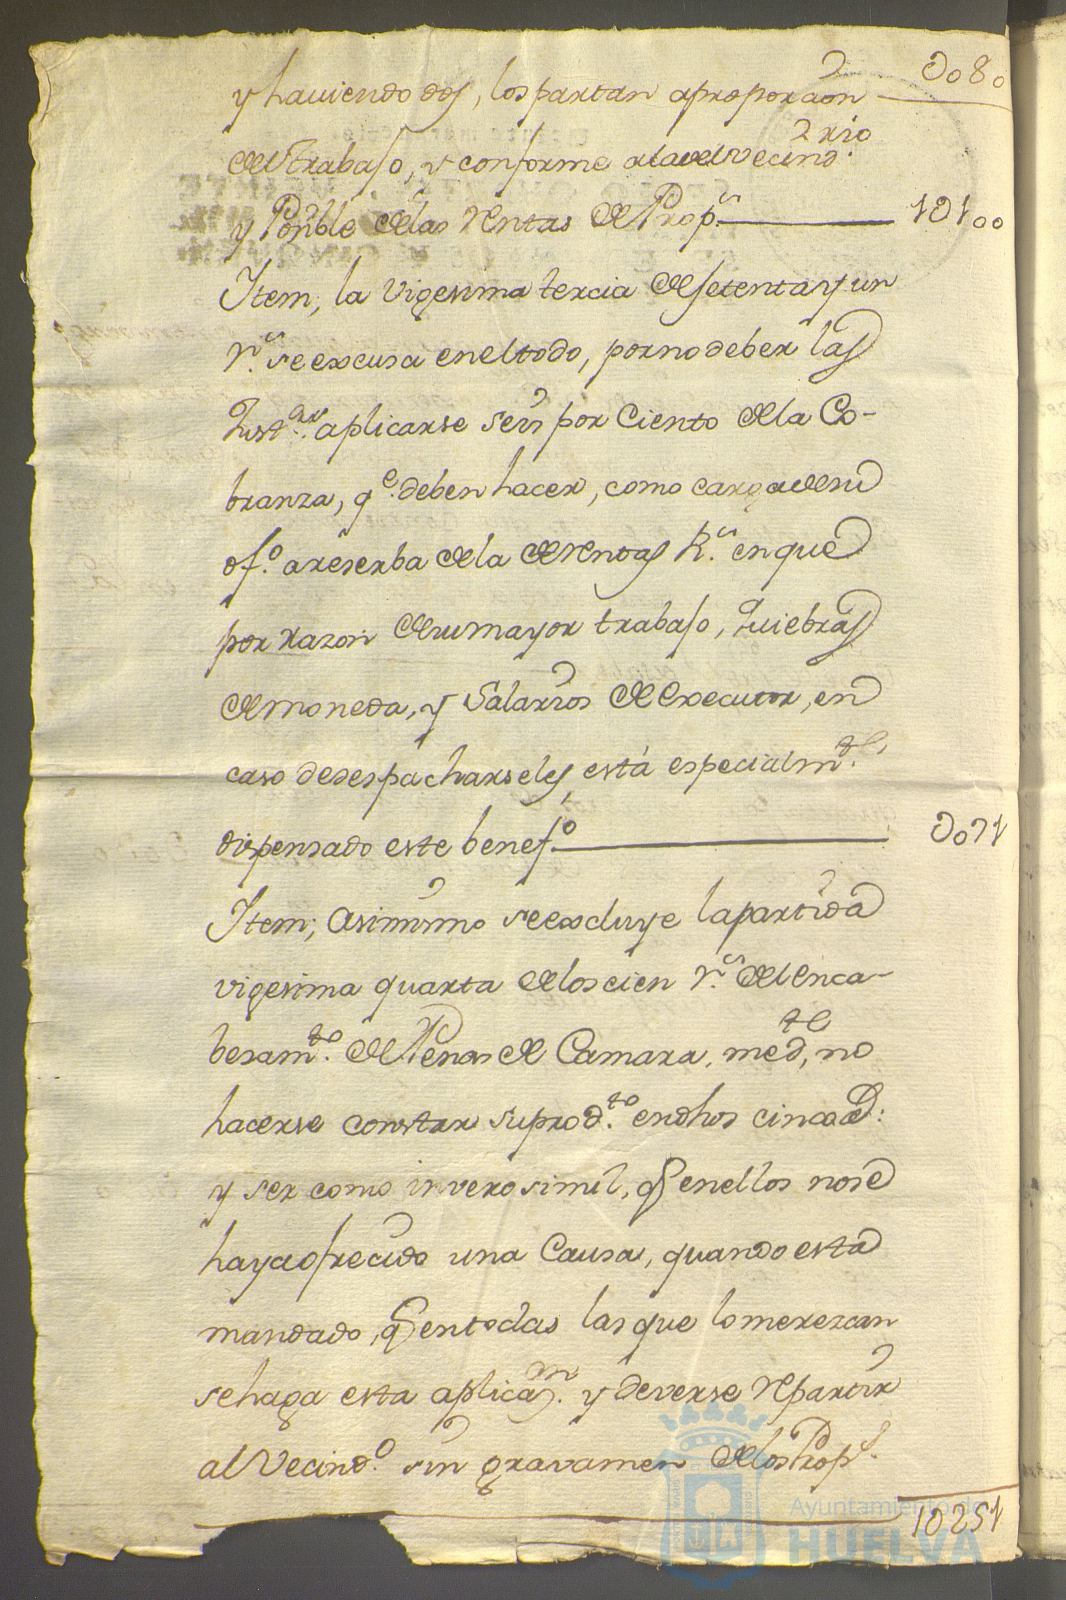 y haviendo dos, los partan a proporcion
0080
del trabajo, y conforme a la del vecind.rio
y Pos̃ible de las rentas de Prop.s
10100
Item, la vigesima tercia de setenta y un
r.s se excusa en el todo, por no deber las
Just.as aplicarse seis por Ciento de la Co-
branza, q.e deben hacer, como carga de su
of.o a reserba de la de rentas R.s en que
por razon de su mayor trabajo, quiebras
de moneda, y Salarios de executor, en
caso de despacharseles, está especialm.te
dispensado este benef.o
0071
Item; asimismo se excluye la partida
vigesima quarta de los cien r.s del enca-
besam.to de Penas de Camara, med.te no
hacerse constar su prod.to en dhos cinco a.s:
y ser como inverosimil, q en ellos no se
haya ofrecido una Causa, quando esta
mandado, q en todas las que lo merezcan
se haga esta aplicaz.n y deverse repartir
al Vecind.o sin gravamen de los Prop.s
10251
Ayuntamiento de
HUELVA